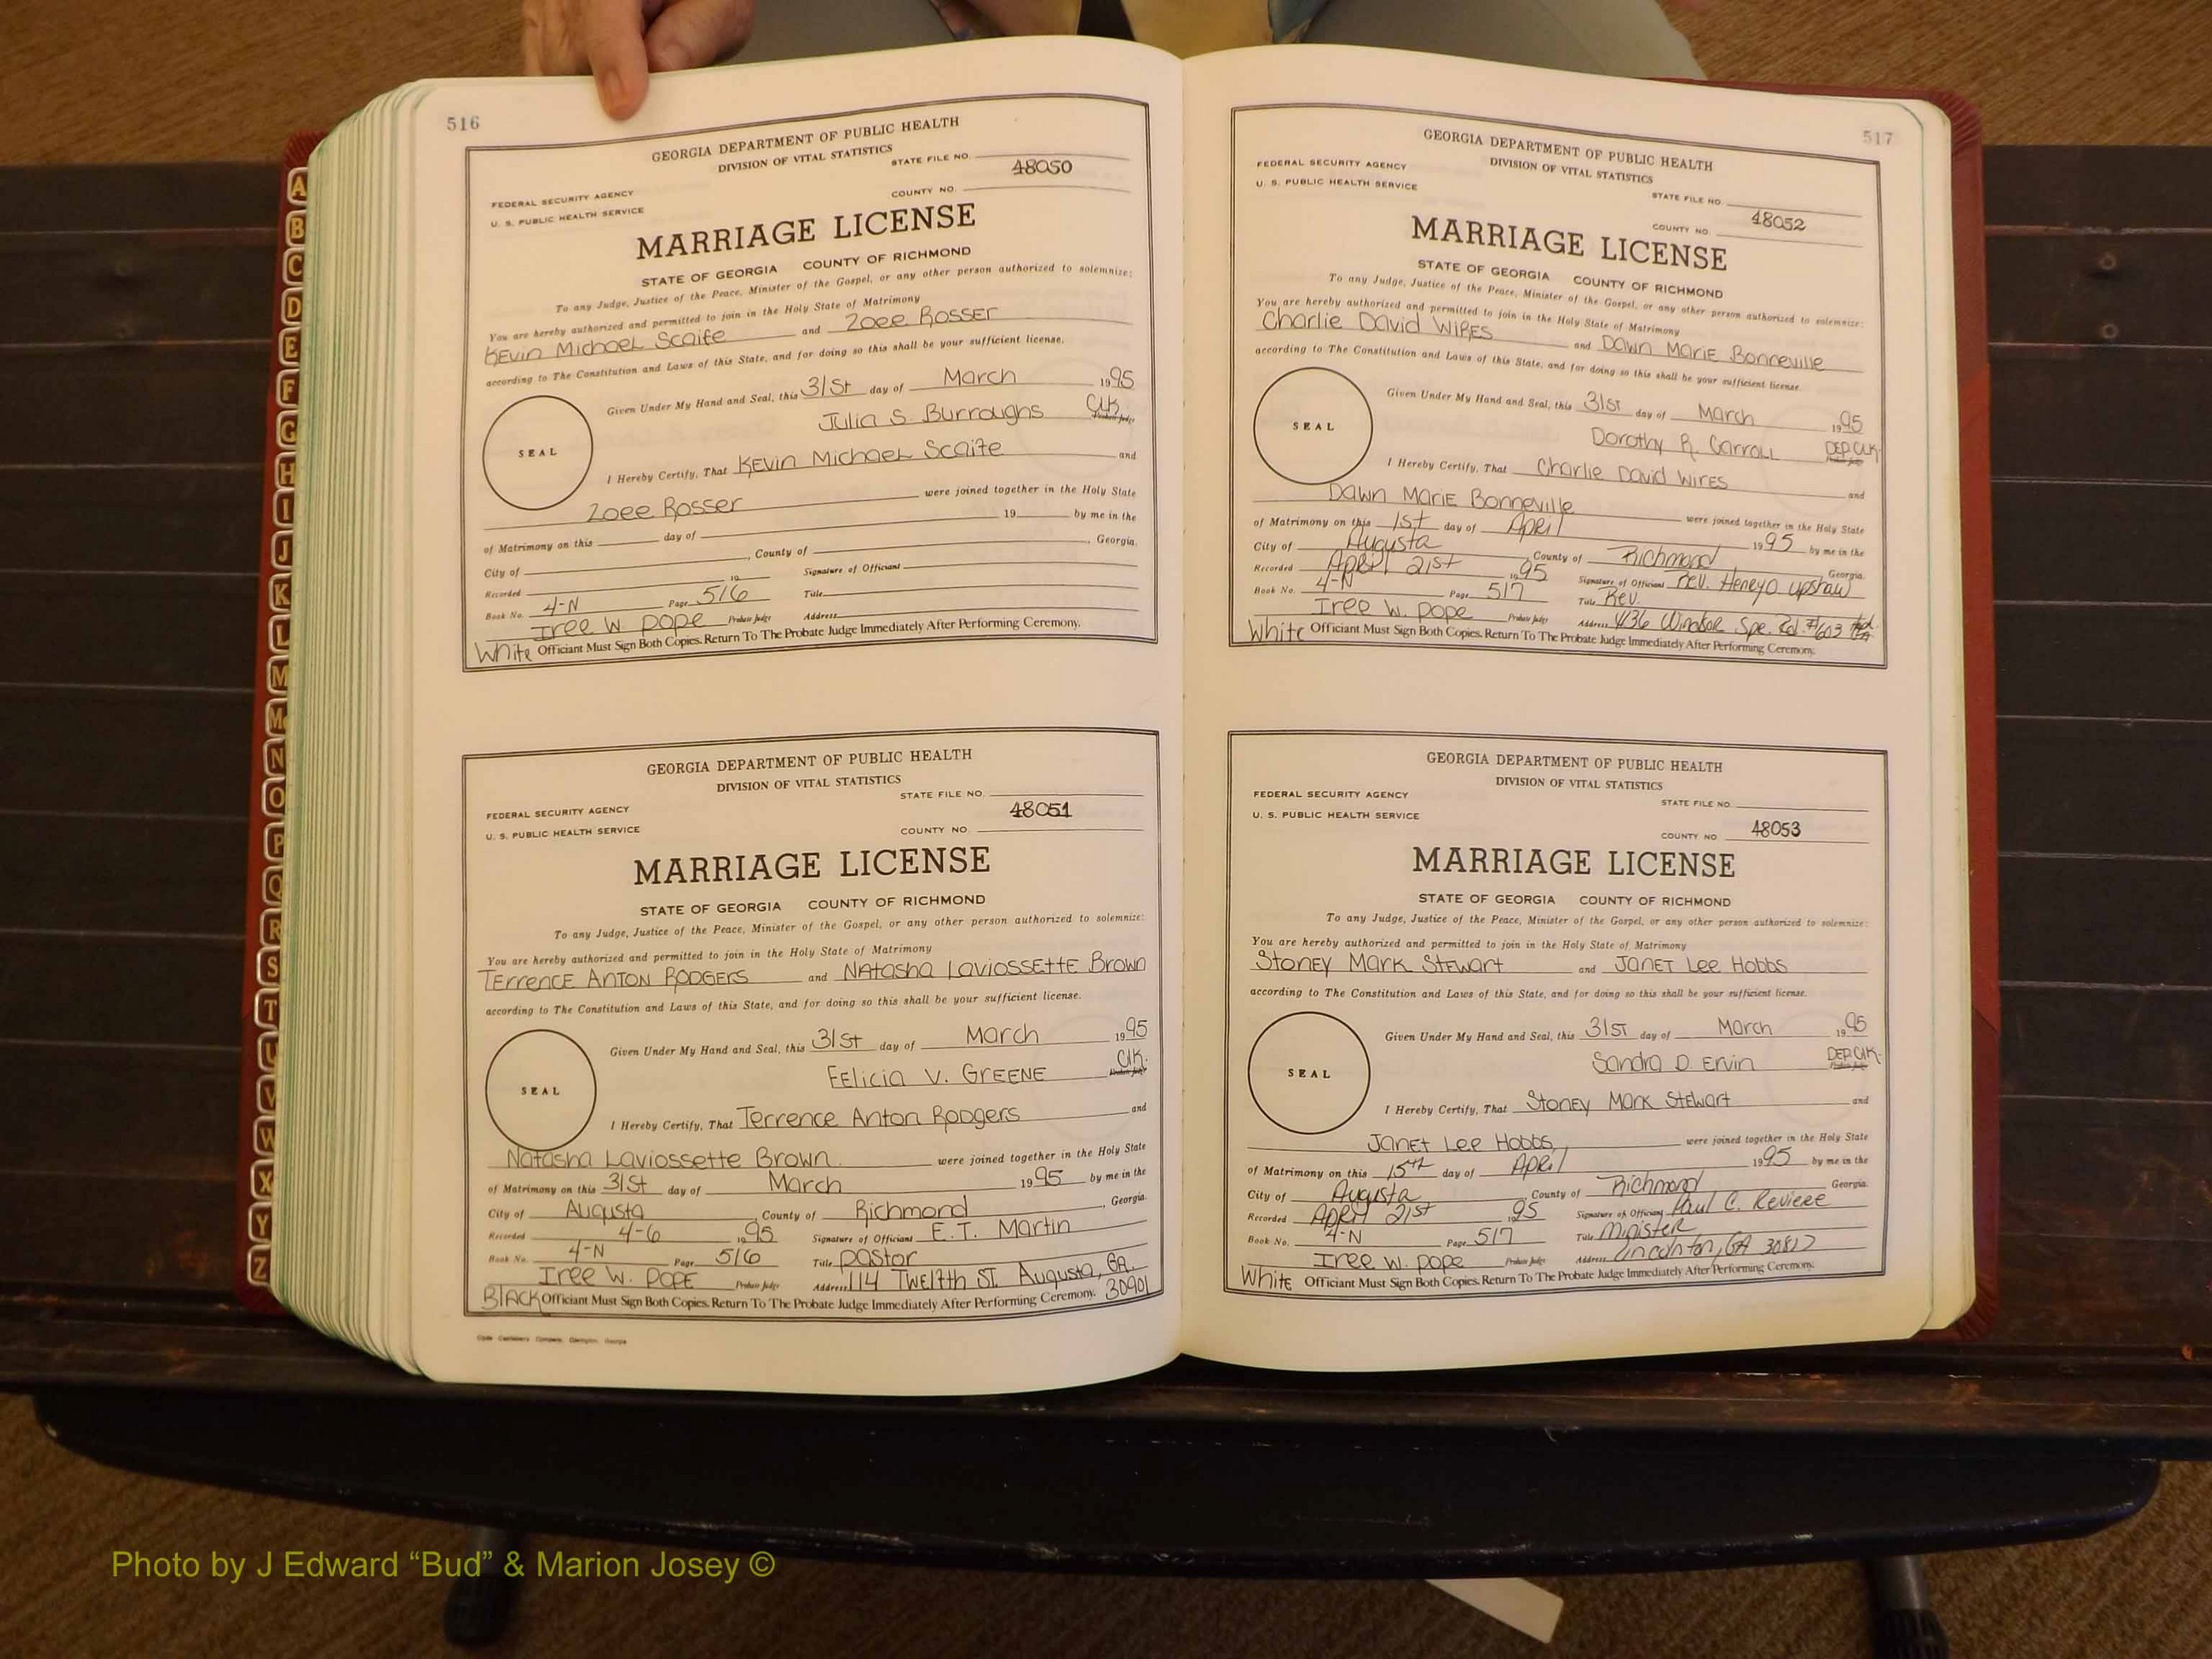 516
GEORGIA DEPARTMENT OF PUBLIC HEALTH
DIVISION OF VITAL STATISTICS
STATE FILE NO.
48050
FEDERAL SECURITY AGENCY
COUNTY NO.
U. S. PUBLIC HEALTH SERVICE
MARRIAGE LICENSE
STATE OF GEORGIA COUNTY OF RICHMOND
To any Judge, Justice of the Peace, Minister of the Gospel, or any other person authorized to solemnize:
You are hereby authorized and permitted to join in the Holy State of Matrimony
Kevin Michael Scaife and Zoee Rosser
according to The Constitution and Laws of this State, and for doing so this shall be your sufficient license.
Given Under My Hand and Seal, this 31st day of March 1995
Julia S. Burroughs Clk.
Probate Judge
SEAL
I Hereby Certify, That Kevin Michael Scaife and
Zoee Rosser were joined together in the Holy State
of Matrimony on this day of 19 by me in the
City of , County of , Georgia.
Recorded 19 Signature of Officiant
Book No. 4-N Page 516 Title
Iree W. Pope Probate Judge Address
White Officiant Must Sign Both Copies. Return To The Probate Judge Immediately After Performing Ceremony.
GEORGIA DEPARTMENT OF PUBLIC HEALTH
DIVISION OF VITAL STATISTICS
STATE FILE NO.
48051
FEDERAL SECURITY AGENCY
COUNTY NO.
U. S. PUBLIC HEALTH SERVICE
MARRIAGE LICENSE
STATE OF GEORGIA COUNTY OF RICHMOND
To any Judge, Justice of the Peace, Minister of the Gospel, or any other person authorized to solemnize:
You are hereby authorized and permitted to join in the Holy State of Matrimony
Terrence Anton Rodgers and Natasha Laviossette Brown
according to The Constitution and Laws of this State, and for doing so this shall be your sufficient license.
Given Under My Hand and Seal, this 31st day of March 1995
Felicia V. Greene Clk.
Probate Judge
SEAL
I Hereby Certify, That Terrence Anton Rodgers and
Natasha Laviossette Brown were joined together in the Holy State
of Matrimony on this 31st day of March 1995 by me in the
City of Augusta, County of Richmond, Georgia.
Recorded 4-6 1995 Signature of Officiant E.T. Martin
Book No. 4-N Page 516 Title Pastor
Iree W. Pope Probate Judge Address 114 Twelfth St. Augusta, GA.
Black Officiant Must Sign Both Copies. Return To The Probate Judge Immediately After Performing Ceremony. 30901
517
GEORGIA DEPARTMENT OF PUBLIC HEALTH
DIVISION OF VITAL STATISTICS
FEDERAL SECURITY AGENCY
U. S. PUBLIC HEALTH SERVICE
STATE FILE NO.
48052
COUNTY NO.
MARRIAGE LICENSE
STATE OF GEORGIA COUNTY OF RICHMOND
To any Judge, Justice of the Peace, Minister of the Gospel, or any other person authorized to solemnize:
You are hereby authorized and permitted to join in the Holy State of Matrimony
Charlie David Wires and Dawn Marie Bonneville
according to The Constitution and Laws of this State, and for doing so this shall be your sufficient license.
Given Under My Hand and Seal, this 31st day of March 1995
Dorothy R. Carroll Dep. Clk.
Probate Judge
SEAL
I Hereby Certify, That Charlie David Wires and
Dawn Marie Bonneville were joined together in the Holy State
of Matrimony on this 1st day of April 1995 by me in the
City of Augusta, County of Richmond, Georgia.
Recorded April 21st 1995 Signature of Officiant Rev. Upshaw
Book No. 4-N Page 517 Title Rev.
Iree W. Pope Probate Judge Address Spr. Rd. #603
White Officiant Must Sign Both Copies. Return To The Probate Judge Immediately After Performing Ceremony.
GEORGIA DEPARTMENT OF PUBLIC HEALTH
DIVISION OF VITAL STATISTICS
FEDERAL SECURITY AGENCY
STATE FILE NO.
U. S. PUBLIC HEALTH SERVICE
COUNTY NO. 48053
MARRIAGE LICENSE
STATE OF GEORGIA COUNTY OF RICHMOND
To any Judge, Justice of the Peace, Minister of the Gospel, or any other person authorized to solemnize:
You are hereby authorized and permitted to join in the Holy State of Matrimony
Stoney Mark Stewart and Janet Lee Hobbs
according to The Constitution and Laws of this State, and for doing so this shall be your sufficient license.
Given Under My Hand and Seal, this 31st day of March 1995
Sandra D. Ervin Dep. Clk.
Probate Judge
SEAL
I Hereby Certify, That Stoney Mark Stewart and
Janet Lee Hobbs were joined together in the Holy State
of Matrimony on this 15th day of April 1995 by me in the
City of Augusta, County of Richmond Georgia.
Recorded April 21st 1995 Signature of Officiant Paul C. Reviere
Book No. 4-N Page 517 Title Minister
Iree W. Pope Probate Judge Address Lincolnton, GA 30817
White Officiant Must Sign Both Copies. Return To The Probate Judge Immediately After Performing Ceremony.
A
B
C
D
E
F
G
H
I
J
K
L
M
Mc
N
O
P
Q
R
S
T
U
V
W
X
Y
Z
Photo by J Edward “Bud” & Marion Josey ©